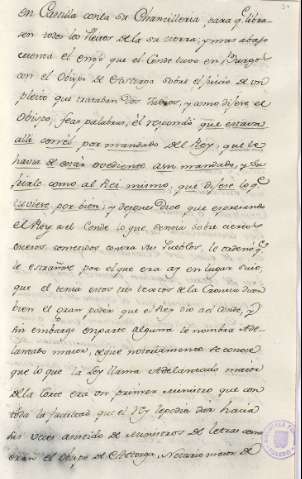 en Castilla con la su Chancilleria para q.e libra
sen todos los Pleitos de la su tierra, y mas abajo
cuenta el enojo que el Conde tuvo en Burgos
con el Obispo de Astorga sobre el juicio de un
pleito que trataban dos Judios, y como dijese el
Obispo, feas palabras, él respondió que estava
alli por mandado del Rey, que le
havia de ser obediente a su mandado, y
como al Rei mismo, que dijese lo q.e
tuviere por bien; y despues dice que
el Rey al Conde lo que sobre ciertos
excesos cometidos contra sus Pueblos, le ordenó q.e
le estrañase por el que era en lugar suio,
que el tenia estos tres textos de la Cronica dan
bien el gran poder que el Rey dio al Conde, y
sin embargo en parte alguna le nombra Ade
lantado maior, de que notoriamente se conoce
que lo que la Ley llama Adelantado maior
de la Corte era un primer Ministro que con
toda la facultad que el Rey le podia dar hacia
sus veces asistido de Ministros de letras como
eran el obispo de Astorga, Notario maior de